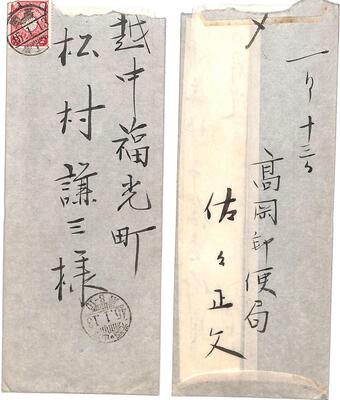 越中福光町
松村謙三様
45.1.13
一月十三日
高岡郵便局
佐々正文